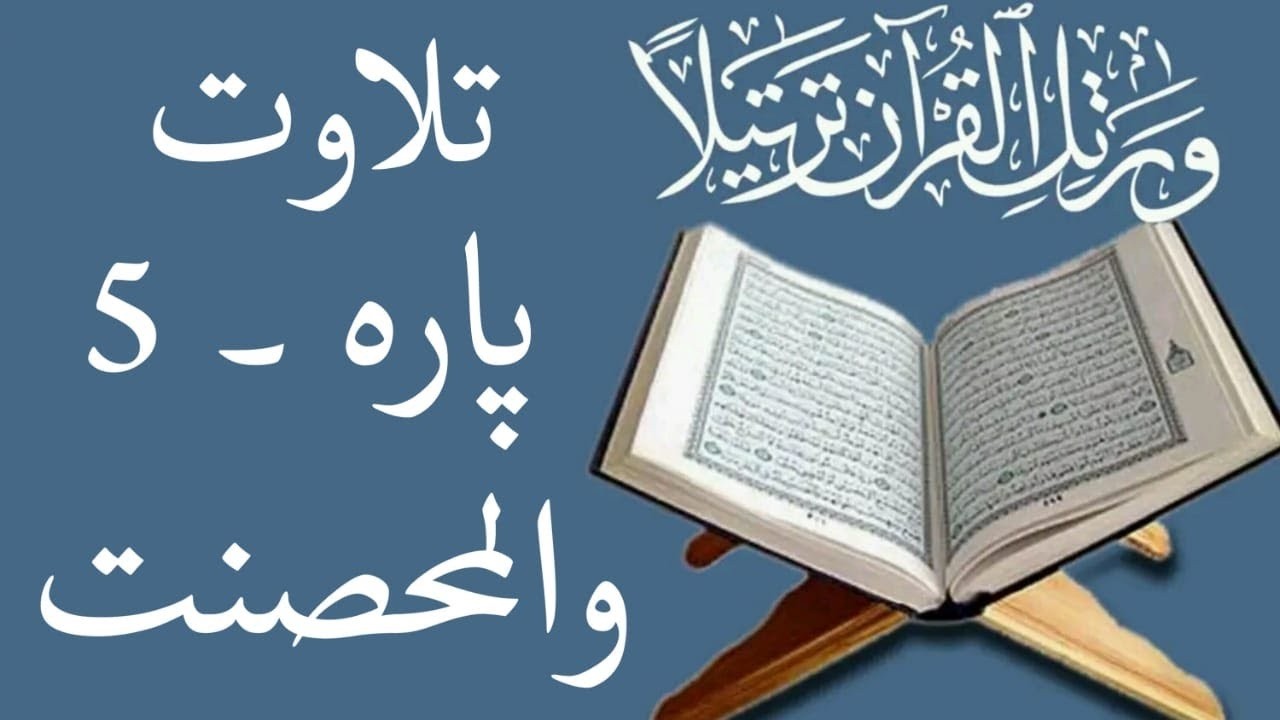 وَرَتِّلِ ٱلْقُرْآنَ تَرْتِيلًا
تلاوت
پاره - 5
والمحصنت